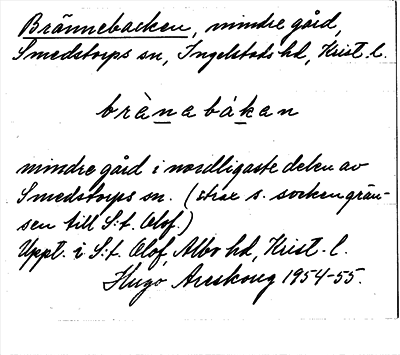 Brännebacken, mindre gård,
Smedstorps sn, Ingelstads hd, Krist. l.
brànabákan
mindre gård i nordligaste delen av
Smedstorps sn. (strax s. sockengrän-
sen till S:t. Olof.)
Uppt. i S:t. Olof, Albo hd, Krist. l.
Hugo Areskoug 1954-55.